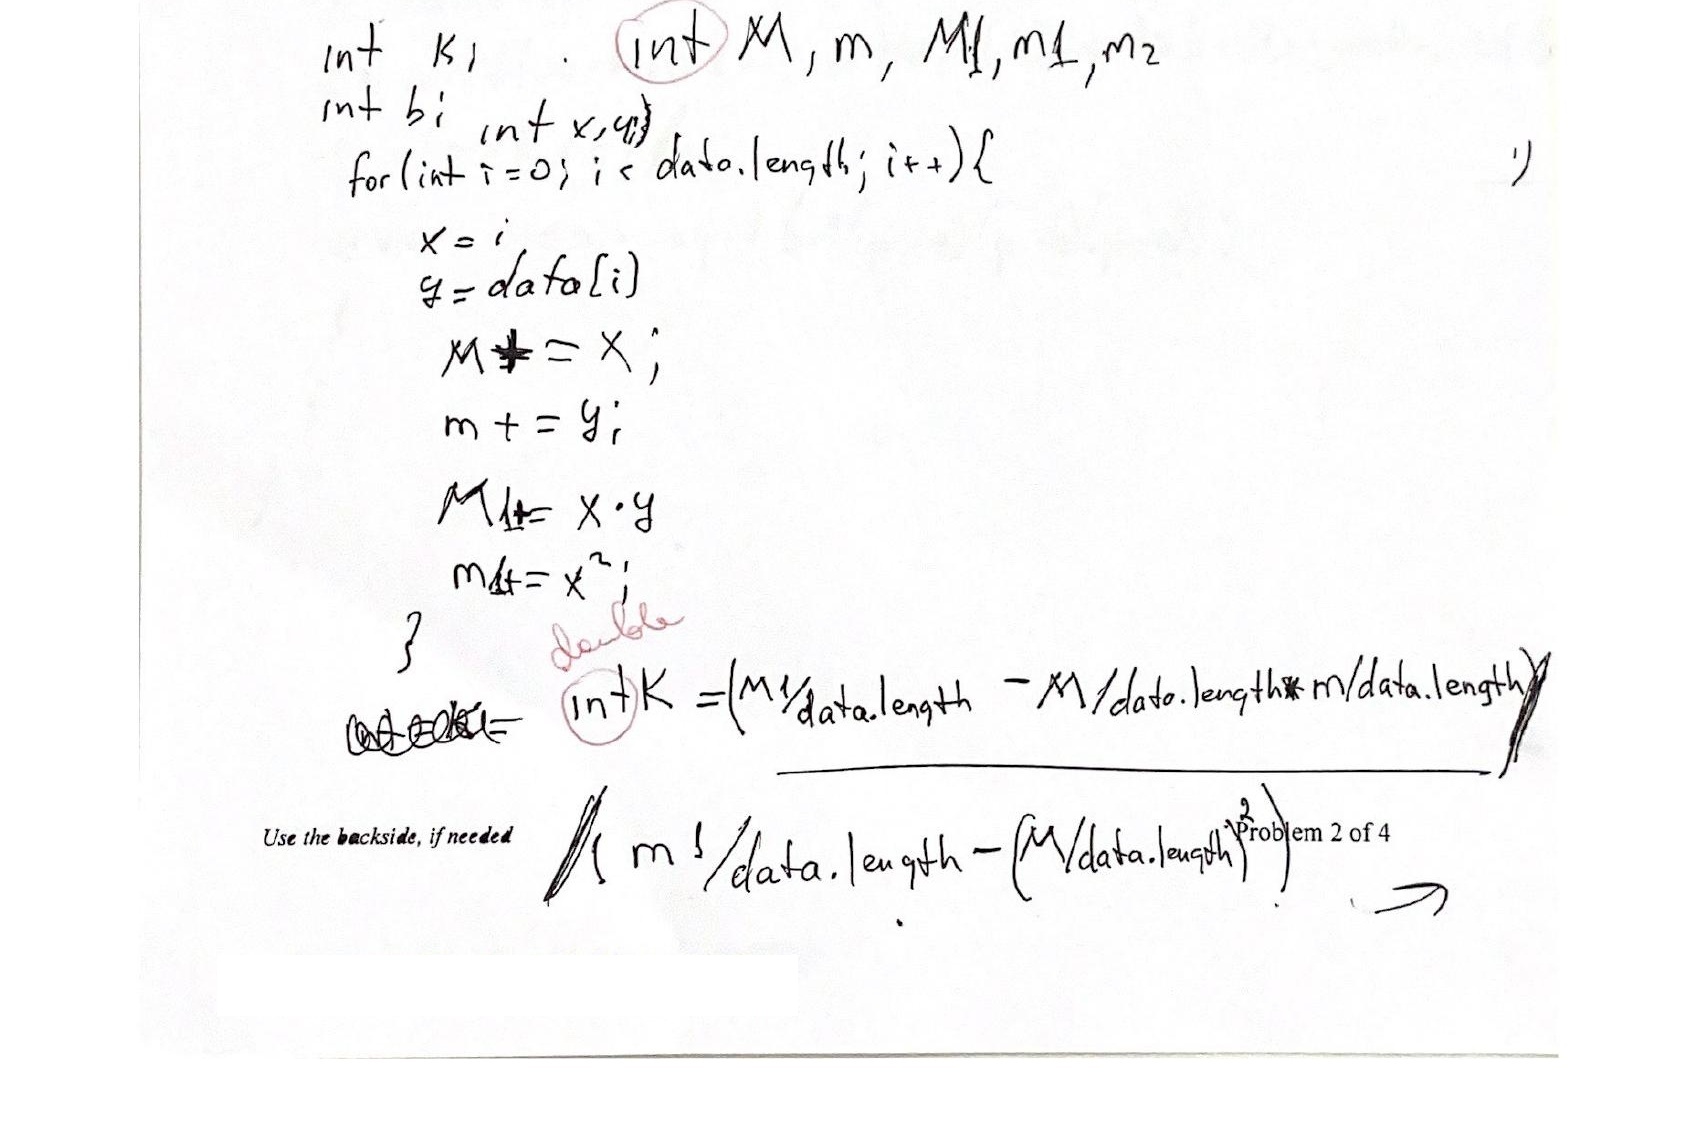 int k; int M, m, M1, m1, m2
int b; int x, y;
for(int i=0; i < data.length; i++){
x = i
y = data[i]
M += x;
m += y;
M1+= x·y
m1+= x²;
}
double
int K = (M1/data.length - M/data.length * m/data.length)
/( m1/data.length - (M/data.length)²)
Use the backside, if needed Problem 2 of 4